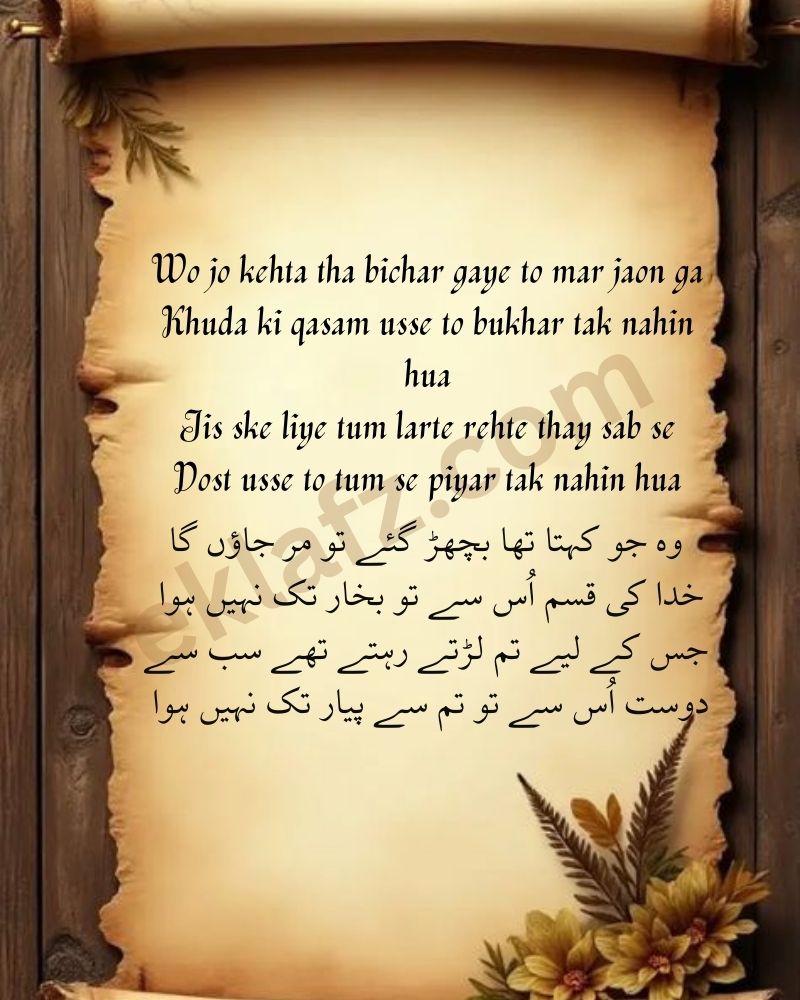 Wo jo kehta tha bichar gaye to mar jaon ga
Khuda ki qasam usse to bukhar tak nahin
hua
Jis ske liye tum larte rehte thay sab se
Dost usse to tum se piyar tak nahin hua
وہ جو کہتا تھا بچھڑ گئے تو مر جاؤں گا
خدا کی قسم اُس سے تو بخار تک نہیں ہوا
جس کے لیے تم لڑتے رہتے تھے سب سے
دوست اُس سے تو تم سے پیار تک نہیں ہوا
eklafz.com